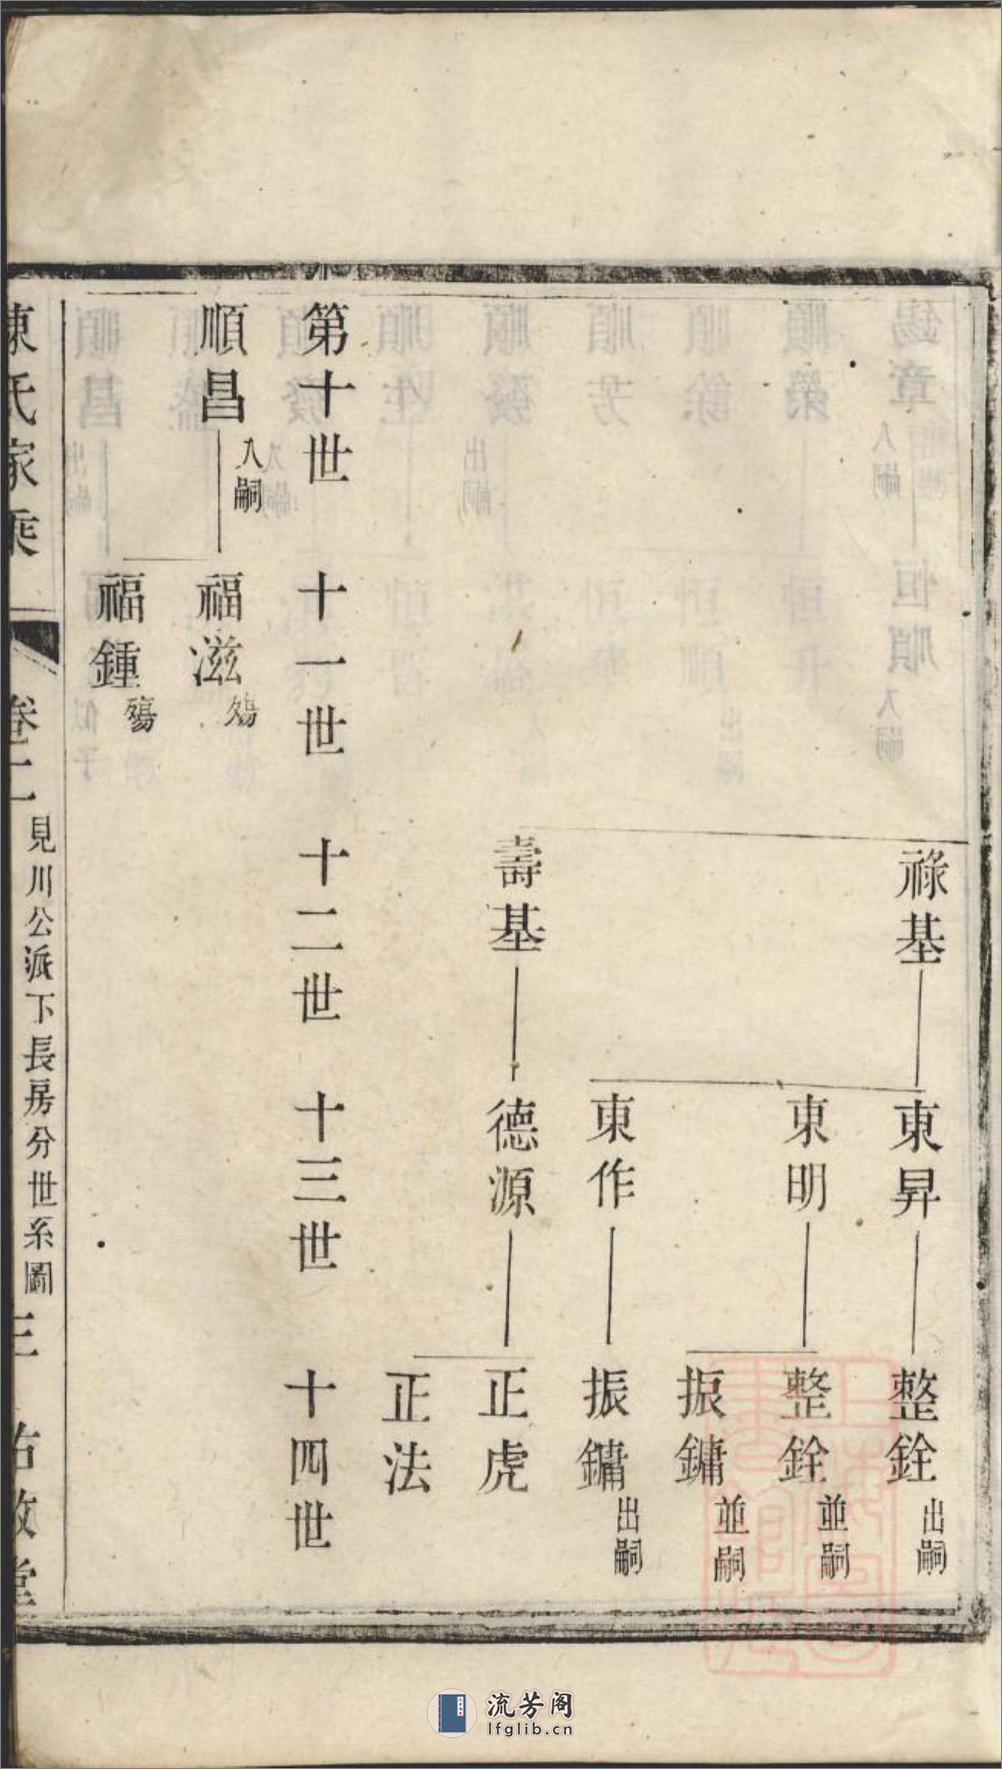 祿基 東昇 整銓 出嗣
東明 整銓 並嗣
振鏞 並嗣
東作 振鏞 出嗣
壽基 德源 正虎
正法
第十世 十一世 十二世 十三世 十四世
順昌 入嗣 福滋 殤
福鍾 殤
陳氏家乘 卷二 見川公派下長房分世系圖 三
流芳阁
lfglib.cn